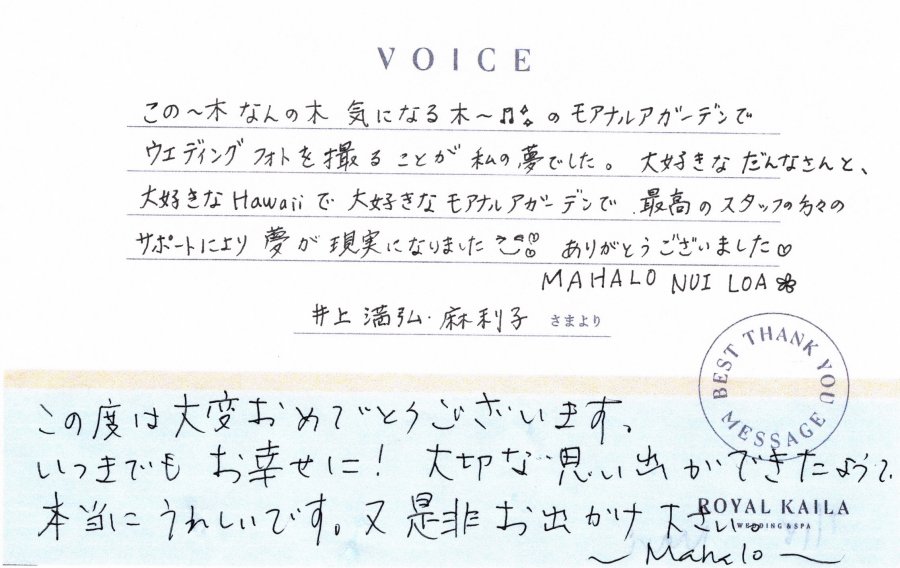 VOICE
この〜木 なんの木 気になる木〜♬ のモアナルアガーデンで
ウエディングフォトを撮ることが私の夢でした。大好きなだんなさんと、
大好きなHawaiiで大好きなモアナルアガーデンで、最高のスタッフの方々の
サポートにより夢が現実になりました ありがとうございました♡
MAHALO NUI LOA
井上 満弘・麻利子 さまより
BEST THANK YOU MESSAGE
この度は大変おめでとうございます。
いつまでもお幸せに! 大切な思い出ができたようで、
本当にうれしいです。又是非お出かけ下さい。
ROYAL KAILA
WEDDING & SPA
〜Mahalo〜